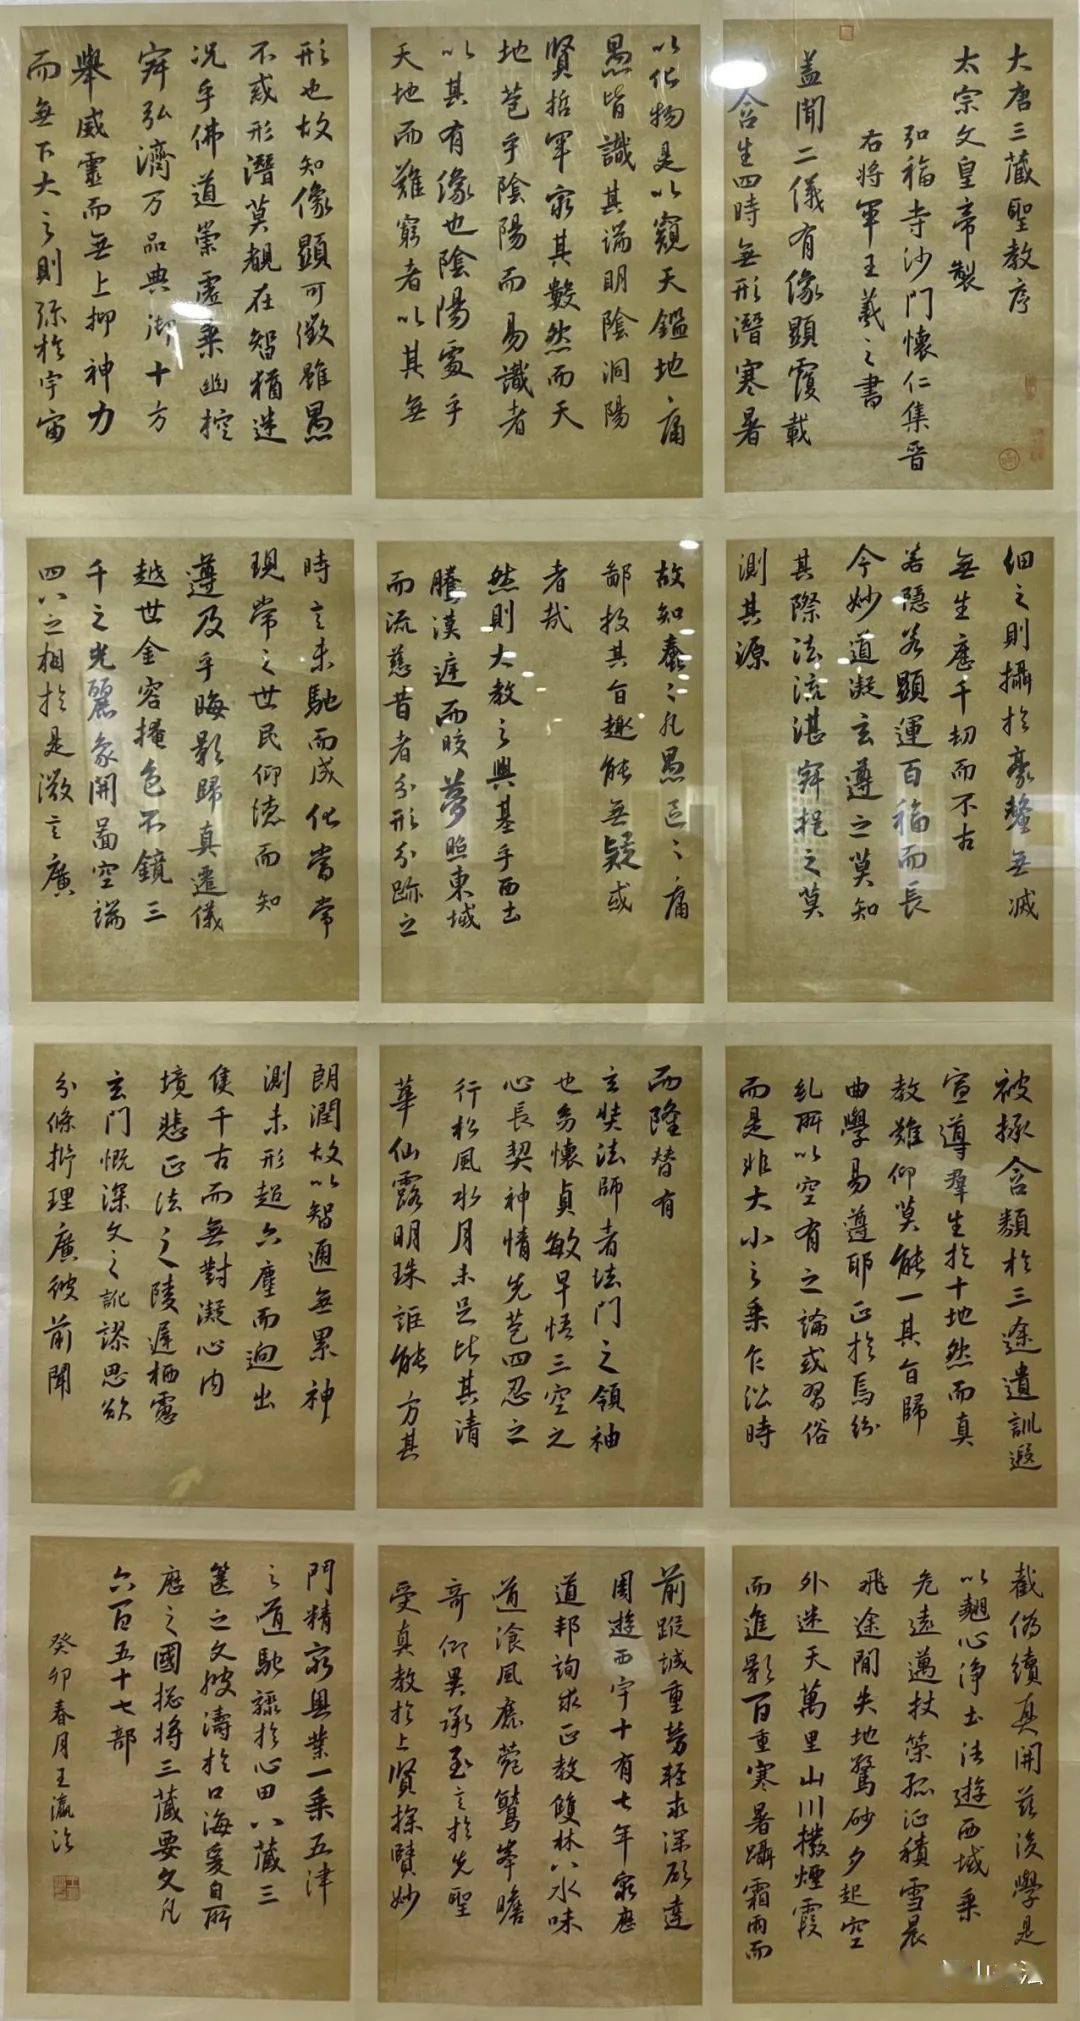 大唐三藏聖教序
太宗文皇帝製
弘福寺沙門懷仁集晉
右將軍王羲之書
蓋聞二儀有像顯覆載
含生四時無形潛寒暑
以化物是以窺天鑑地庸
愚皆識其端明陰洞陽
賢哲罕窮其數然而天
地苞乎陰陽而易識者
以其有像也陰陽處乎
天地而難窮者以其無
形也故知像顯可徵雖愚
不惑形潛莫覩在智猶迷
況乎佛道崇虛乘幽控
寂弘濟万品典御十方
舉威靈而無上抑神力
而無下大之則彌於宇宙
細之則攝於豪釐無滅
無生歷千劫而不古
若隱若顯運百福而長
今妙道凝玄遵之莫知
其際法流湛寂挹之莫
測其源
故知蠢〻凡愚區〻庸
鄙投其旨趣能無疑或
者哉
然則大教之興基乎西土
騰漢庭而皎夢照東域
而流慈昔者分形分跡之
時言未馳而成化當常
現常之世民仰德而知
遵及乎晦影歸真遷儀
越世金容掩色不鏡三
千之光麗象開圖空端
四八之相於是微言廣
被拯含類於三途遺訓遐
宣導羣生於十地然而真
教難仰莫能一其旨歸
曲學易遵耶正於焉紛
糺所以空有之論或習俗
而是非大小之乘乍沿時
而隆替有
玄奘法師者法門之領袖
也幼懷貞敏早悟三空之
心長契神情先苞四忍之
行松風水月未足比其清
華仙露明珠詎能方其
朗潤故以智通無累神
測未形超六塵而迥出
隻千古而無對凝心內
境悲正法之陵遲栖慮
玄門慨深文之訛謬思欲
分條析理廣彼前聞
截偽續真開茲後學是
以翹心淨土法遊西域乘
危遠邁杖策孤征積雪晨
飛途閒失地驚砂夕起空
外迷天萬里山川撥煙霞
而進影百重寒暑躡霜雨而
前蹤誠重勞輕求深願達
周遊西宇十有七年窮歷
道邦詢求正教雙林八水味
道飡風鹿菀鷲峯瞻
奇仰異承至言於先聖
受真教於上賢探賾妙
門精窮奧業一乘五律
之道馳驟於心田八藏三
篋之文波濤於口海爰自所
歷之國揔將三藏要文凡
六百五十七部
癸卯春月王瀛